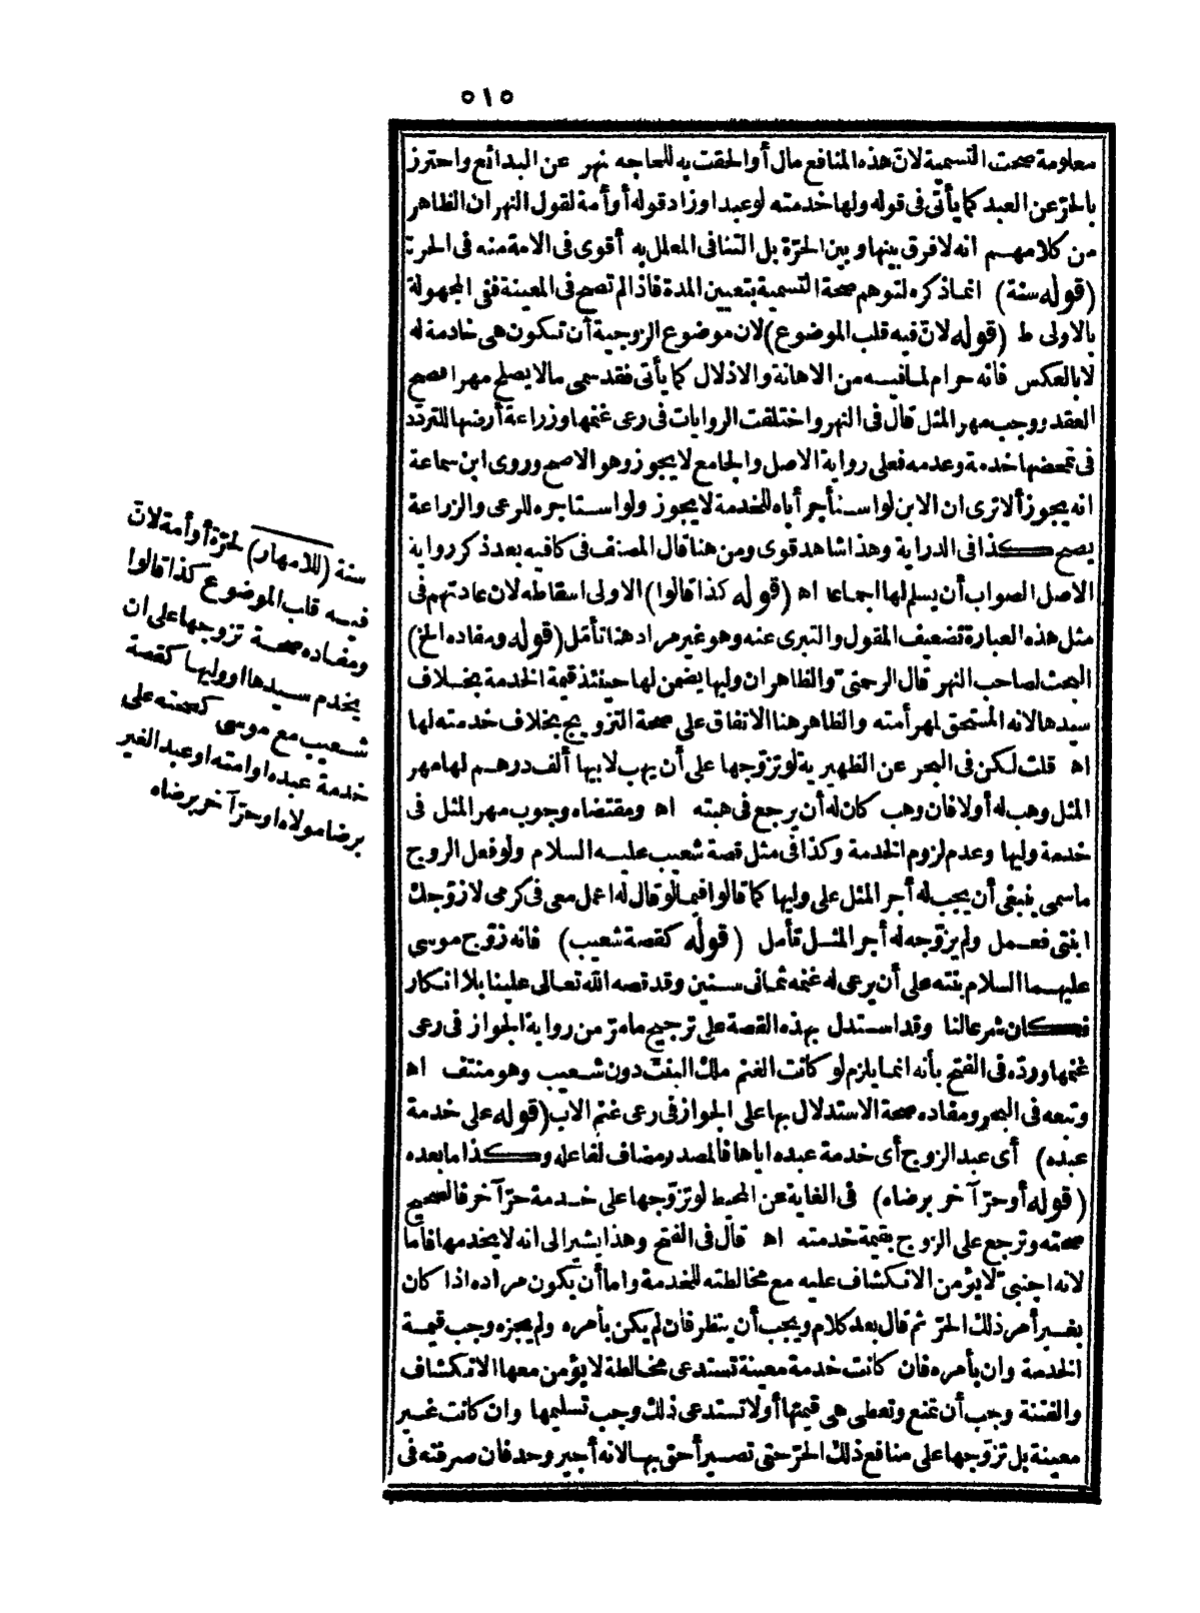 ٥١٥
معلومة صحت التسمية لانّ هذه المنافع مال أو الحقت به للحاجه نهر عن البدائع واحترز
بالحرّ عن العبد كما يأتى فى قوله ولها خدمته لو عبدا وزاد قوله أو أمة لقول النهر ان الظاهر
من كلامهم انه لا فرق بينها وبين الحرّة بل التنافى المعلل به أقوى فى الامة منه فى الحرة
(قوله سنة) انما ذكره لتوهم صحة التسمية بتعيين المدة فاذا لم تصح فى المعينة ففى المجهولة
بالاولى ط (قوله لانّ فيه قلب الموضوع) لان موضوع الزوجية أن تكون هى خادمة له
لا بالعكس فانه حرام لما فيه من الاهانة والاذلال كما يأتى فقد سمى مالا يصلح مهرا فصح
العقد ووجب مهر المثل قال فى النهر واختلفت الروايات فى رعى غنمها وزراعة أرضها للتردّد
فى تمحضها خدمة وعدمه فعلى رواية الاصل والجامع لا يجوز وهو الاصح وروى ابن سماعة
انه يجوز ألا ترى ان الابن لو استأجر أباه للخدمة لا يجوز ولو استاجره للرعى والزراعة
يصح كذا فى الدراية وهذا شاهد قوى ومن هنا قال المصنف فى كافيه بعد ذكر رواية
الاصل الصواب أن يسلم لها اجماعا اه (قوله كذا قالوا) الاولى اسقاطه لان عادتهم فى
مثل هذه العبارة تضعيف المقول والتبرى عنه وهو غير مراد هنا تأمّل (قوله ومفاده الخ)
البحث لصاحب النهر قال الرحمتىّ والظاهر ان وليها يضمن لها حينئذ قيمة الخدمة بخلاف
سيدها لانه المستحق لمهر أمته والظاهر هنا الاتفاق على صحة التزويج بخلاف خدمته لها
اه قلت لكن فى البحر عن الظهيرية لو تزوّجها على أن يهب لابيها ألف درهم لها مهر
المثل وهب له أولا فان وهب كان له أن يرجع فى هبته اه ومقتضاه وجوب مهر المثل فى
خدمة وليها وعدم لزوم الخدمة وكذا فى مثل قصة شعيب عليه السلام ولو فعل الزوج
ما سمى ينبغى أن يجب له أجر المثل على وليها كما قالوا فيما لو قال له اعمل معى فى كرمى لازوّجك
ابنتى فعمل ولم يزوّجه له أجر المثل تأمل (قوله كقصة شعيب) فانه زوّج موسى
عليهما السلام بنته على أن يرعى له غنمه ثمانى سنين وقد قصه الله تعالى علينا بلا انكار
فكان شرعا لنا وقد استدل بهذه القصة على ترجيح ما مرّ من رواية الجواز فى رعى
غنمها وردّه فى الفتح بأنه انما يلزم لو كانت الغنم ملك البنت دون شعيب وهو منتف اه
وتبعه فى البحر ومفاده صحة الاستدلال بها على الجواز فى رعى غنم الاب (قوله على خدمة
عبده) أى عبد الزوج أى خدمة عبده اياها فالمصدر مضاف لفاعله وكذا ما بعده
(قوله أو حرّ آخر برضاه) فى الغاية عن المحيط لو تزوّجها على خدمة حرّ آخر فالصحيح
صحته وترجع على الزوج بقيمة خدمته اه قال فى الفتح وهذا يشير الى انه لا يخدمها فأما
لانه اجنبىّ لا يؤمن الانكشاف عليه مع مخالطته للخدمة واما أن يكون مراده اذا كان
بغير أمر ذلك الحرّ ثم قال بعد كلام ويجب أن ينظر فان لم يكن بأمره ولم يجزه وجب قيمة
الخدمة وان بأمره فان كانت خدمة معينة تستدعى مخالطة لا يؤمن معها الانكشاف
والفتنة وجب أن تمنع وتعطى هى قيمتها أو لا تستدعى ذلك وجب تسليمها وان كانت غير
معينة بل تزوّجها على منافع ذلك الحرّ حتى تصير أحق بها لانه أجير وحد فان صرفته فى
سنة (للامهار) لحرّة أو أمة لانّ
فيه قلب الموضوع كذا قالوا
ومفاده صحة تزوجها على ان
يخدم سيدها او وليها كقصة
شعيب مع موسى كصحته على
خدمة عبده او امته او عبد الغير
برضا مولاه او حرّ آخر برضاه